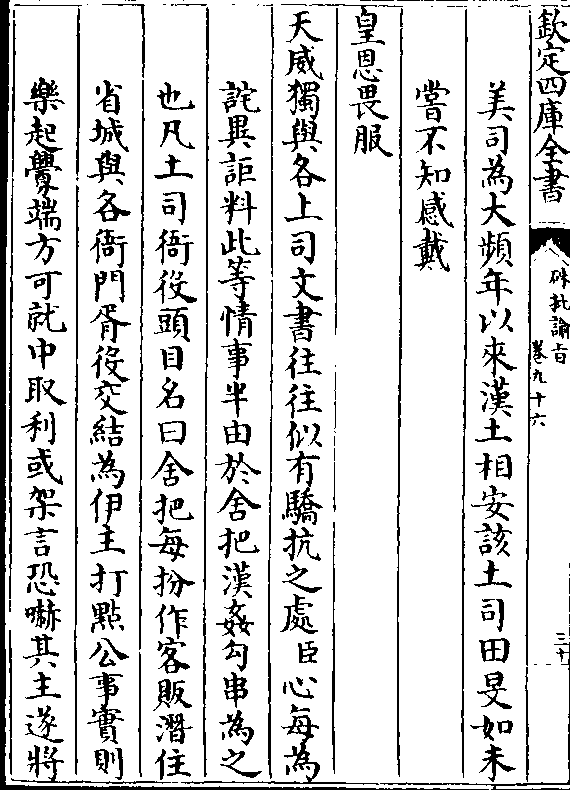 欽定四庫全書
硃批諭旨
卷九十六
三十
美司為大頻年以來漢土相安該土司田旻如未
嘗不知感戴
皇恩畏服
天威獨與各上司文書往往似有驕抗之處臣心每為
詫異詎料此等情事半由於舍把漢姦勾串為之
也凡土司衙役頭目名曰舍把每扮作客販潛住
省城與各衙門胥役交結為伊主打點公事實則
樂起釁端方可就中取利或架言恐嚇其主遂將